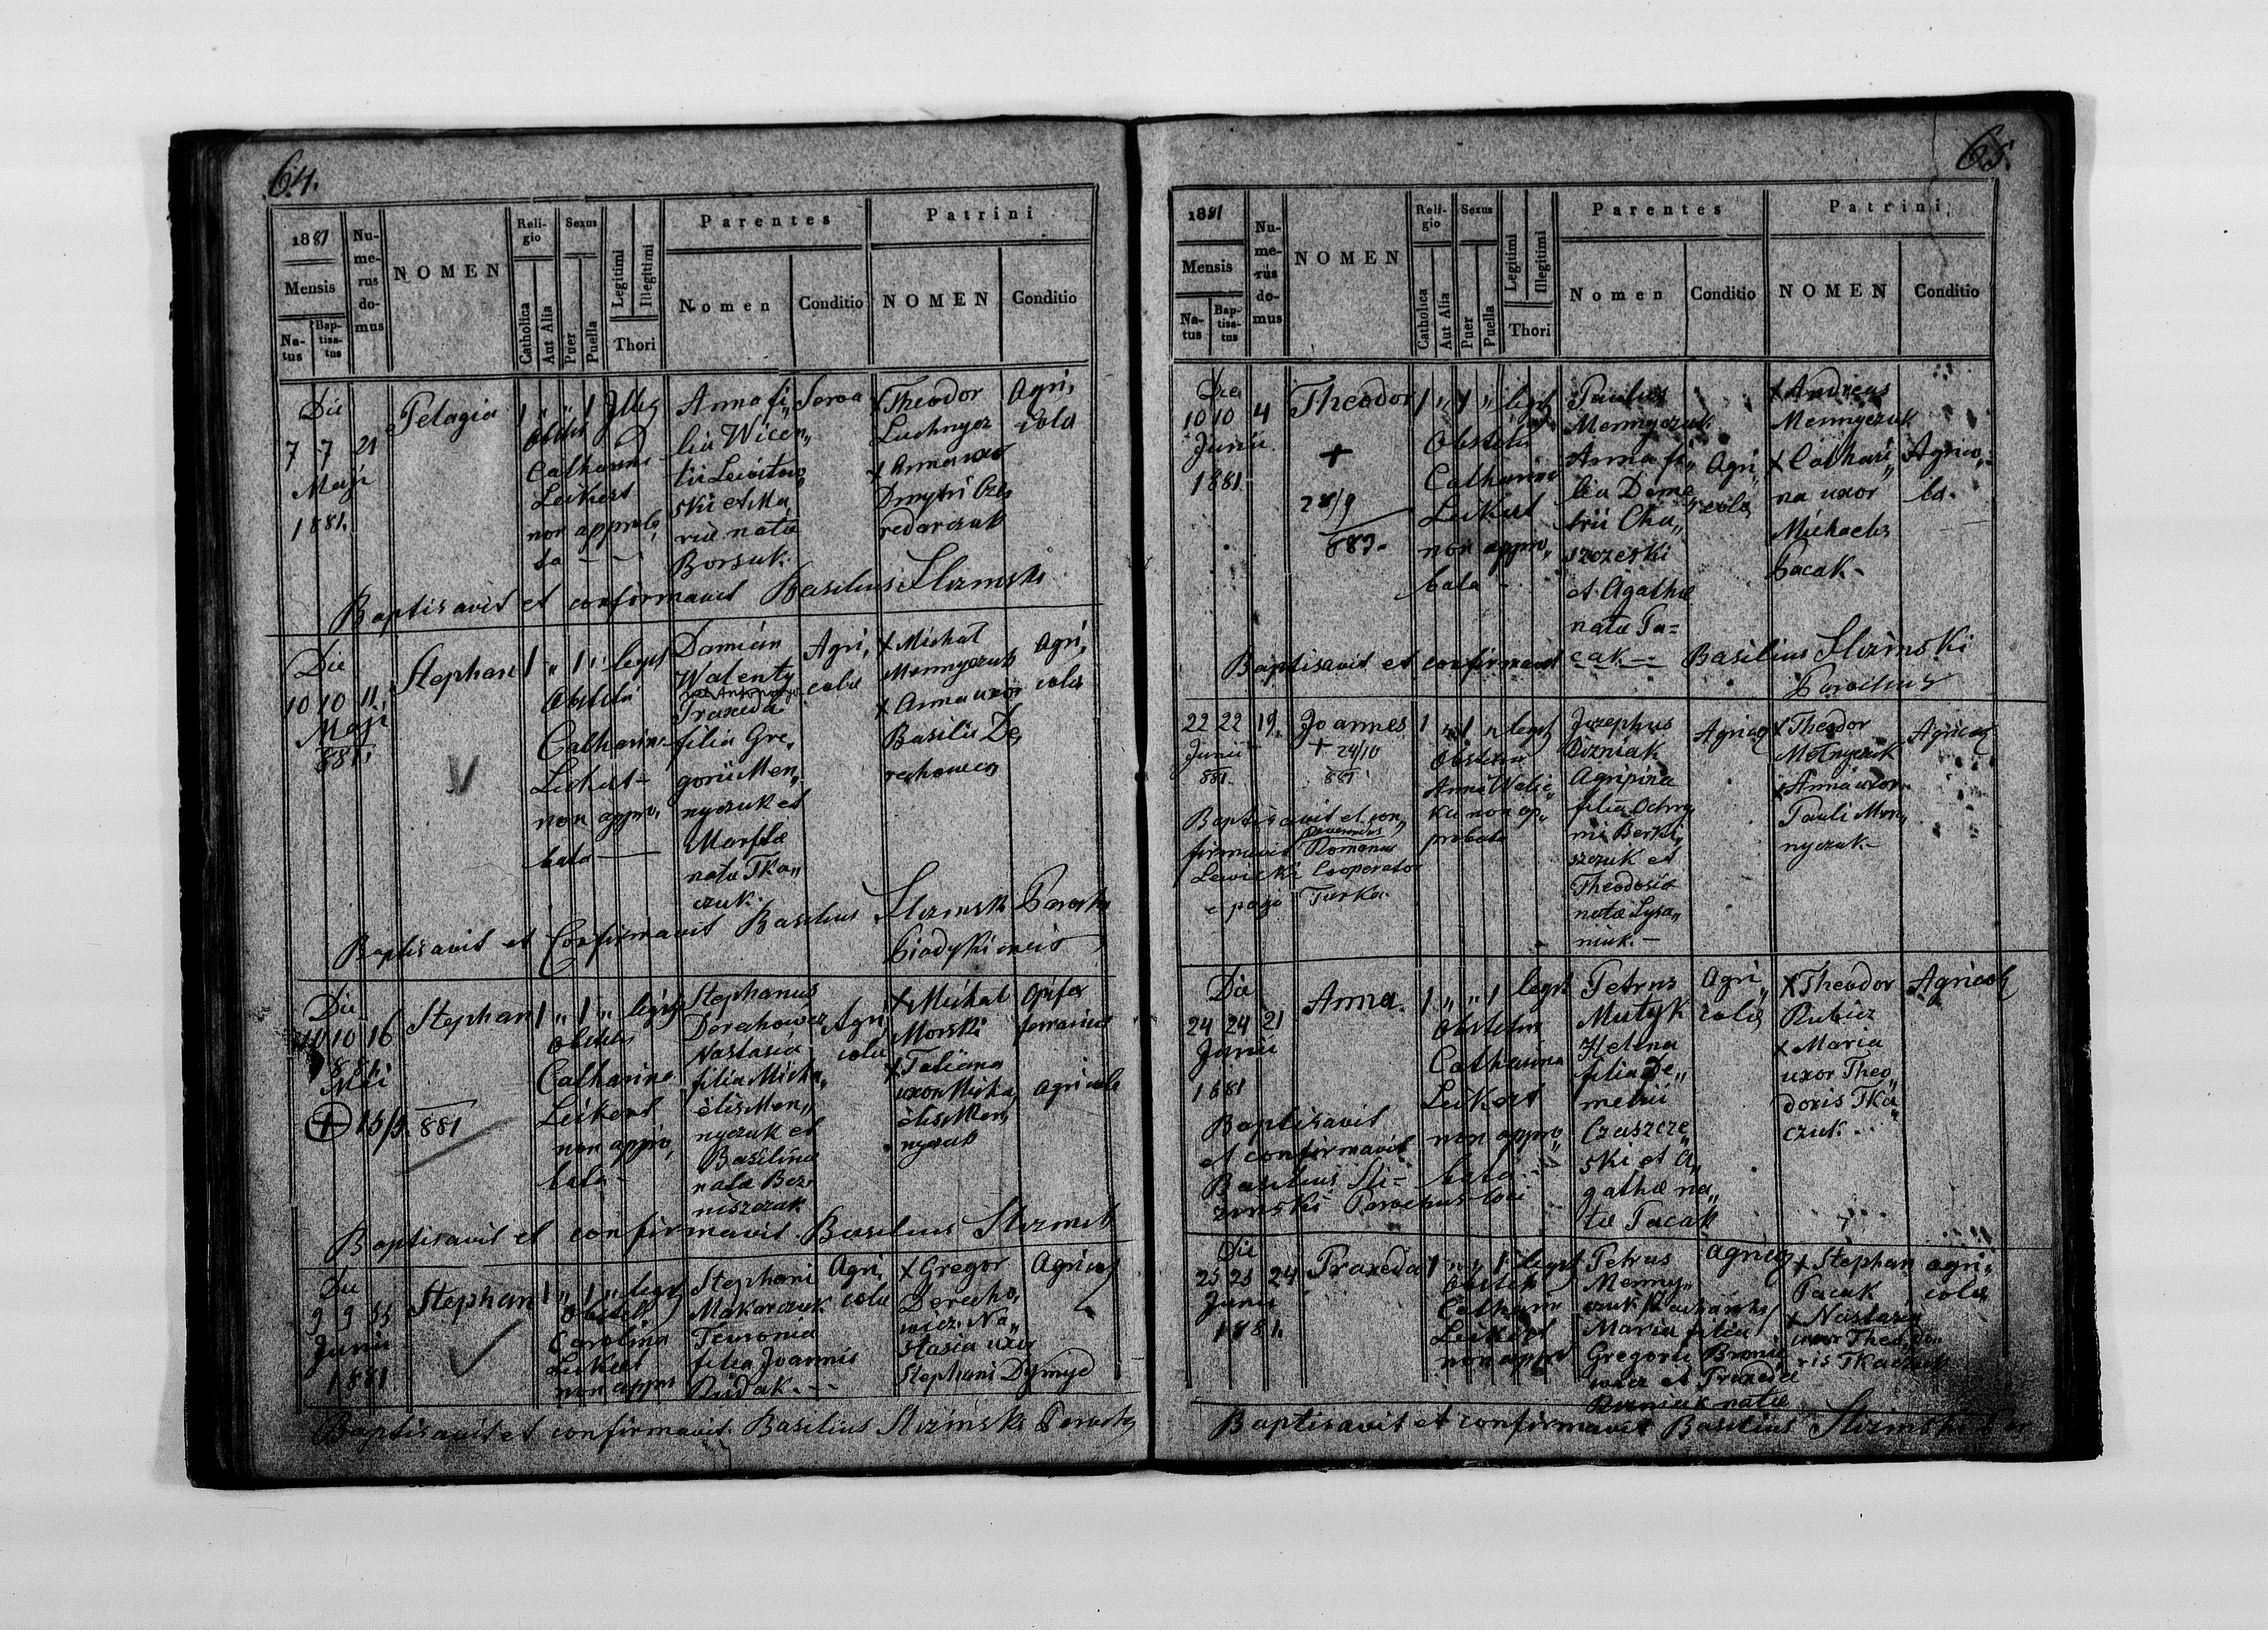 64.
1881
Mensis
Na-
tus
Bap-
tisa-
tus
Nu-
me-
rus
do-
mus
NOMEN
Reli-
gio
Catholica
Aut Alia
Sexus
Puer
Puella
Legitimi
Illegitimi
Thori
Parentes
Nomen
Conditio
Patrini
NOMEN
Conditio
Die
7 7 21
Maji
1881.
Pelagia
1 " " 1 Illeg
Obstet
Catharina
Leikert
non approba
ta
Anna fi„
lia Wicen„
tii
ski et Ma„
riae nata
Borsuk.
Serva
+ Theodor
Luchnycz
+ Anna uxor
Dmytri Cze
redarczuk
Agri,
cola
Baptisavit et confirmavit Basilius Slizinski
Die
10 10 11
Maji
881.
Stephan
1 " 1 " legit
Obstet
Catharina
Leikert
non appro,
bata
Damian
Walenty
Praxeda
filia Gre,
gorii Men„
nyczuk et
Marfae
nata Tka„
czuk.
Agri,
cola
+ Michal
Mennyczuk
+ Anna uxor
Basilii De
rechowicz
Agri,
cola
Baptisavit et Confirmavit Basilius Slizinski Parochus
Die
10 10 16
881
Mai
+ 15/5 881
Stephan
1 " 1 " legit
Obstet
Catharina
Leikert
non appro,
bata
Stephanus
Derechowicz
Nastasia
filia Micha„
elis Men„
nyczuk et
Basilinae
nata Bez,
niszczuk
Agri
cola
+ Michal
Morski
+ Tatiana
uxor Micha
elis Men„
nyczuk
Opifex
ferrarius
agricola
Baptisavit et confirmavit Basilius Slizinski
Die
9 9 55
Junii
1881
Stephan
1 " 1 " legit
Obstet
Carolina
Leikert
non appro
Stephani
Makarczuk
Teuronia
filia Joannis
Rudak.
Agri,
cola
+ Gregor
Derecho,
wicz. Na„
stasia uxor
Stephani Dymyd
Agricol
Baptisavit et confirmavit Basilius Slizinski Parochus
65.
1881
Mensis
Na-
tus
Bap-
tisa-
tus
Nu-
me-
rus
do-
mus
NOMEN
Reli-
gio
Catholica
Aut Alia
Sexus
Puer
Puella
Legitimi
Illegitimi
Thori
Parentes
Nomen
Conditio
Patrini
NOMEN
Conditio
Die
10 10 4
Junii
1881
Theodor
+
28/9
883.
1 " 1 " legit
Obstet
Catharina
Leikert
non appro„
bata
Paulus
Mennyczuk
Anna fi„
lia Deme
trii Cha„
szczeski
et Agathae
nata Pa=
cak.
Agri„
cola
+ Andreas
Mennyczuk
+ Cathari„
na uxor
Michaelis
Pacak.
Agrico„
la.
Baptisavit et confirmavit Basilius Slizinski
Parochus
22 22 19.
Junii
881.
Joannes
+ 24/10
881
1 " 1 " legit
Obstetrix
Anna Walic„
ka non ap„
probata
Josephus
Dizniak
Agripina
filia Ochry
mi Berki„
szczuk et
Theodosia
nata Lysa„
niuk.
Agricol
+ Theodor
Melnyczuk
+ Anna uxor
Pauli Men„
nyczuk
Agricol
Baptisavit et con„
firmavit Romanus
Lewicki Cooperator
e pago Turka.
Die
24 24 21
Junii
1881
Anna.
1 " " 1 legit
Obstetrix
Catharina
Leikert
non appro„
bata
Petrus
Mutyk
Helena
filia De„
metrii
Czaszcze„
ski et A„
gathae na„
ta Pacak
Agri„
cola
+ Theodor
Rubicz
+ Maria
uxor Theo„
doris Tka„
czuk
Agricol
Baptisavit
et confirmavit
Basilius Sli=
zinski Parochus loci
Die
25 25 24
Junii
1881.
Praxeda
1 " " 1 legit
Obstet
Catharin
Leikert
non appr
Petrus
Menny„
czuk
Maria filia
Gregorii
wicz et Praxeda
Dizniak nata
Agricol
+ Stephan
Pacak
+ Nastasia
uxor Theodo
ris Tkaczuk
agri,
cola
Baptisavit et confirmavit Basilius Slizinski Par